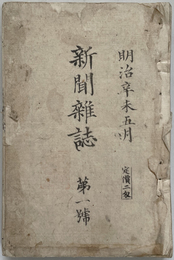 明治辛未五月
定價二匁
新聞雜誌
第一號